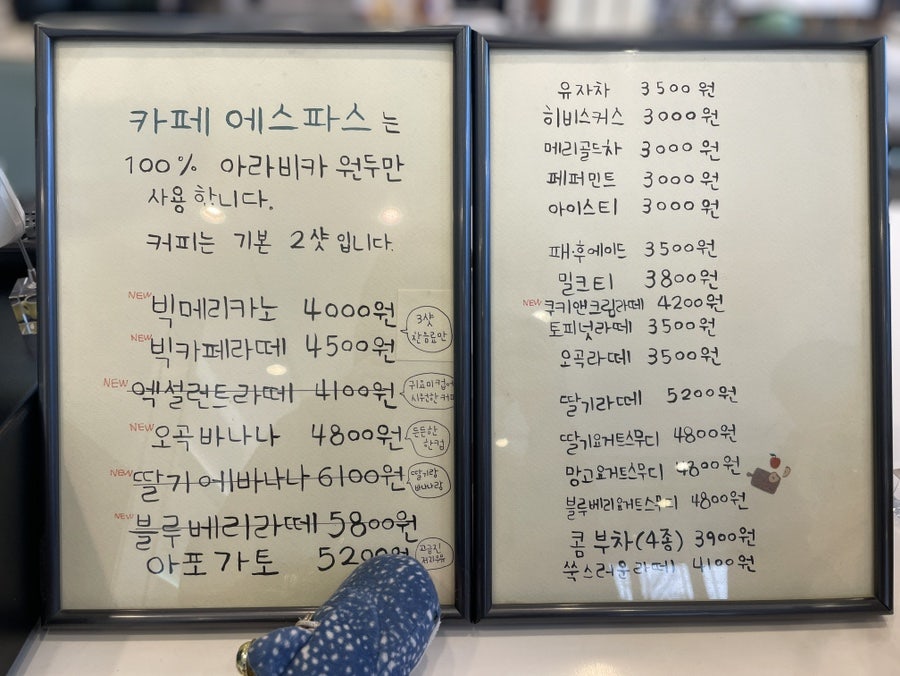 카페 에스파스는
100% 아라비카 원두만
사용합니다.
커피는 기본 2샷입니다.
NEW 빅메리카노 4000원
3샷
찬음료만
NEW 빅카페라떼 4500원
NEW 엑설런트라떼 4100원
귀요미컵에
시원한 커피
NEW 오곡바나나 4800원
든든한
한컵
NEW 딸기에바나나 6100원
딸기랑
바나나랑
NEW 블루베리라떼 5800원
아포가토 5200원
고급진
저지우유
유자차 3500원
히비스커스 3000원
메리골드차 3000원
페퍼민트 3000원
아이스티 3000원
패.후에이드 3500원
밀크티 3800원
NEW 쿠키앤크림라떼 4200원
토피넛라떼 3500원
오곡라떼 3500원
딸기라떼 5200원
딸기요거트스무디 4800원
망고요거트스무디 4800원
블루베리요거트스무디 4800원
콤부차(4종) 3900원
쑥스러운라떼 4100원